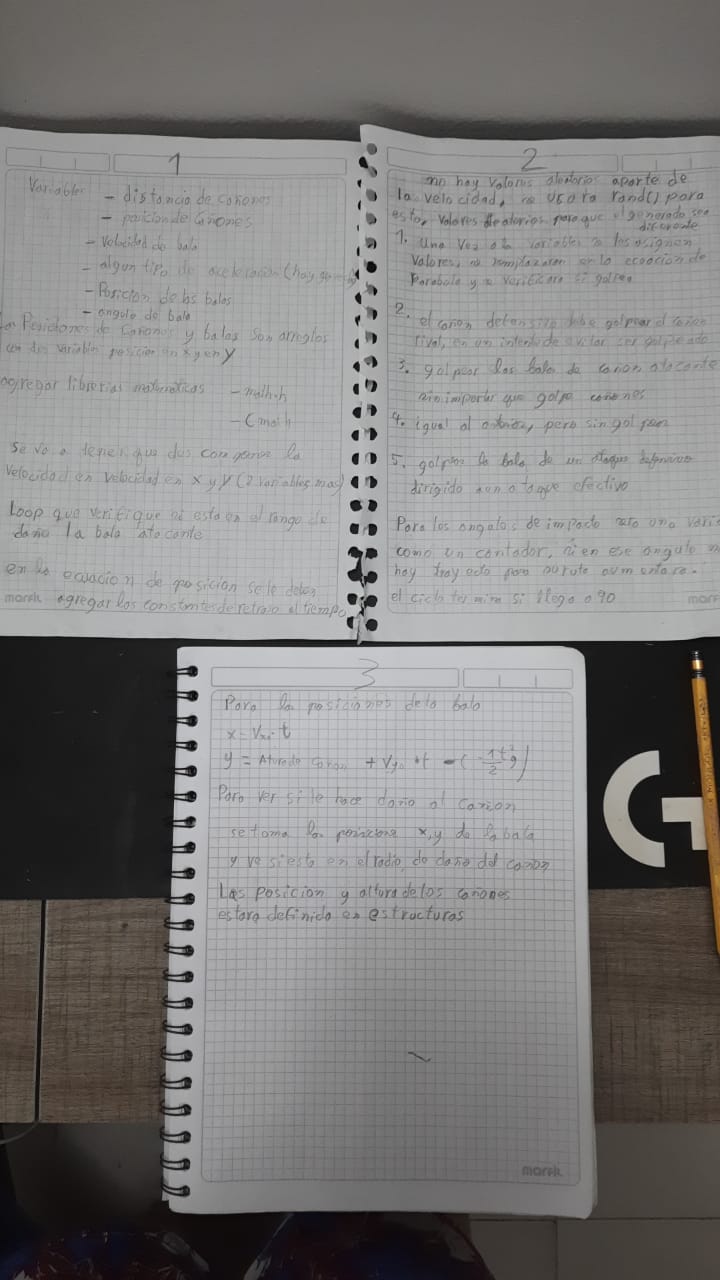 1
Variables
- distancia de cañones
- posicion de cañones
- Velocidad de bala
- algun tipo de aceleracion (hay
- Posicion de las balas
- angulo de bala
Las Posiciones de cañones y balas son arreglos
con dos variables posicion en x y en y
agregar librerias matematicas - math.h
- Cmath
Se va a tener que descomponer la
Velocidad en velocidad en x y y (2 variables mas)
Loop que verifique si esta en el rango de
daño la bala atacante
en la ecuacion de posicion se le deben
agregar las constantes de retraso el tiempo
marfil
2
hay valores aleatorios aparte de
la velocidad, se usara rand() para
esto, valores aleatorios para que el generado sea
diferente
1. Una vez a la variables se les asignen
Valores, se remplazaran en la ecuacion de
Parabola y se verificara si golpea
2. el cañon defensivo debe golpear el cañon
rival, en un intento de evitar ser golpeado
3. golpear las balas de cañon atacante
sin importar que golpe cañones
4. igual al anterior, pero sin golpear
5. golpear la bala de un ataque defensivo
dirigido a un ataque efectivo
Para los angulos de impacto una varia
como un contador, si en ese angulo n
hay trayecto para su ruta aumentara.
el ciclo termina si llego a 90
marf
3
Para la posiciones de la bala
x = Vxo·t
y = Altura de cañon + Vyo·t - (1/2 t²g)
Para ver si le hace daño al cañon
se toma la posicione x,y de la bala
y ve si esta en el radio de daño del cañon
Las posicion y altura de los cañones
estara definida en estructuras
marfil
G